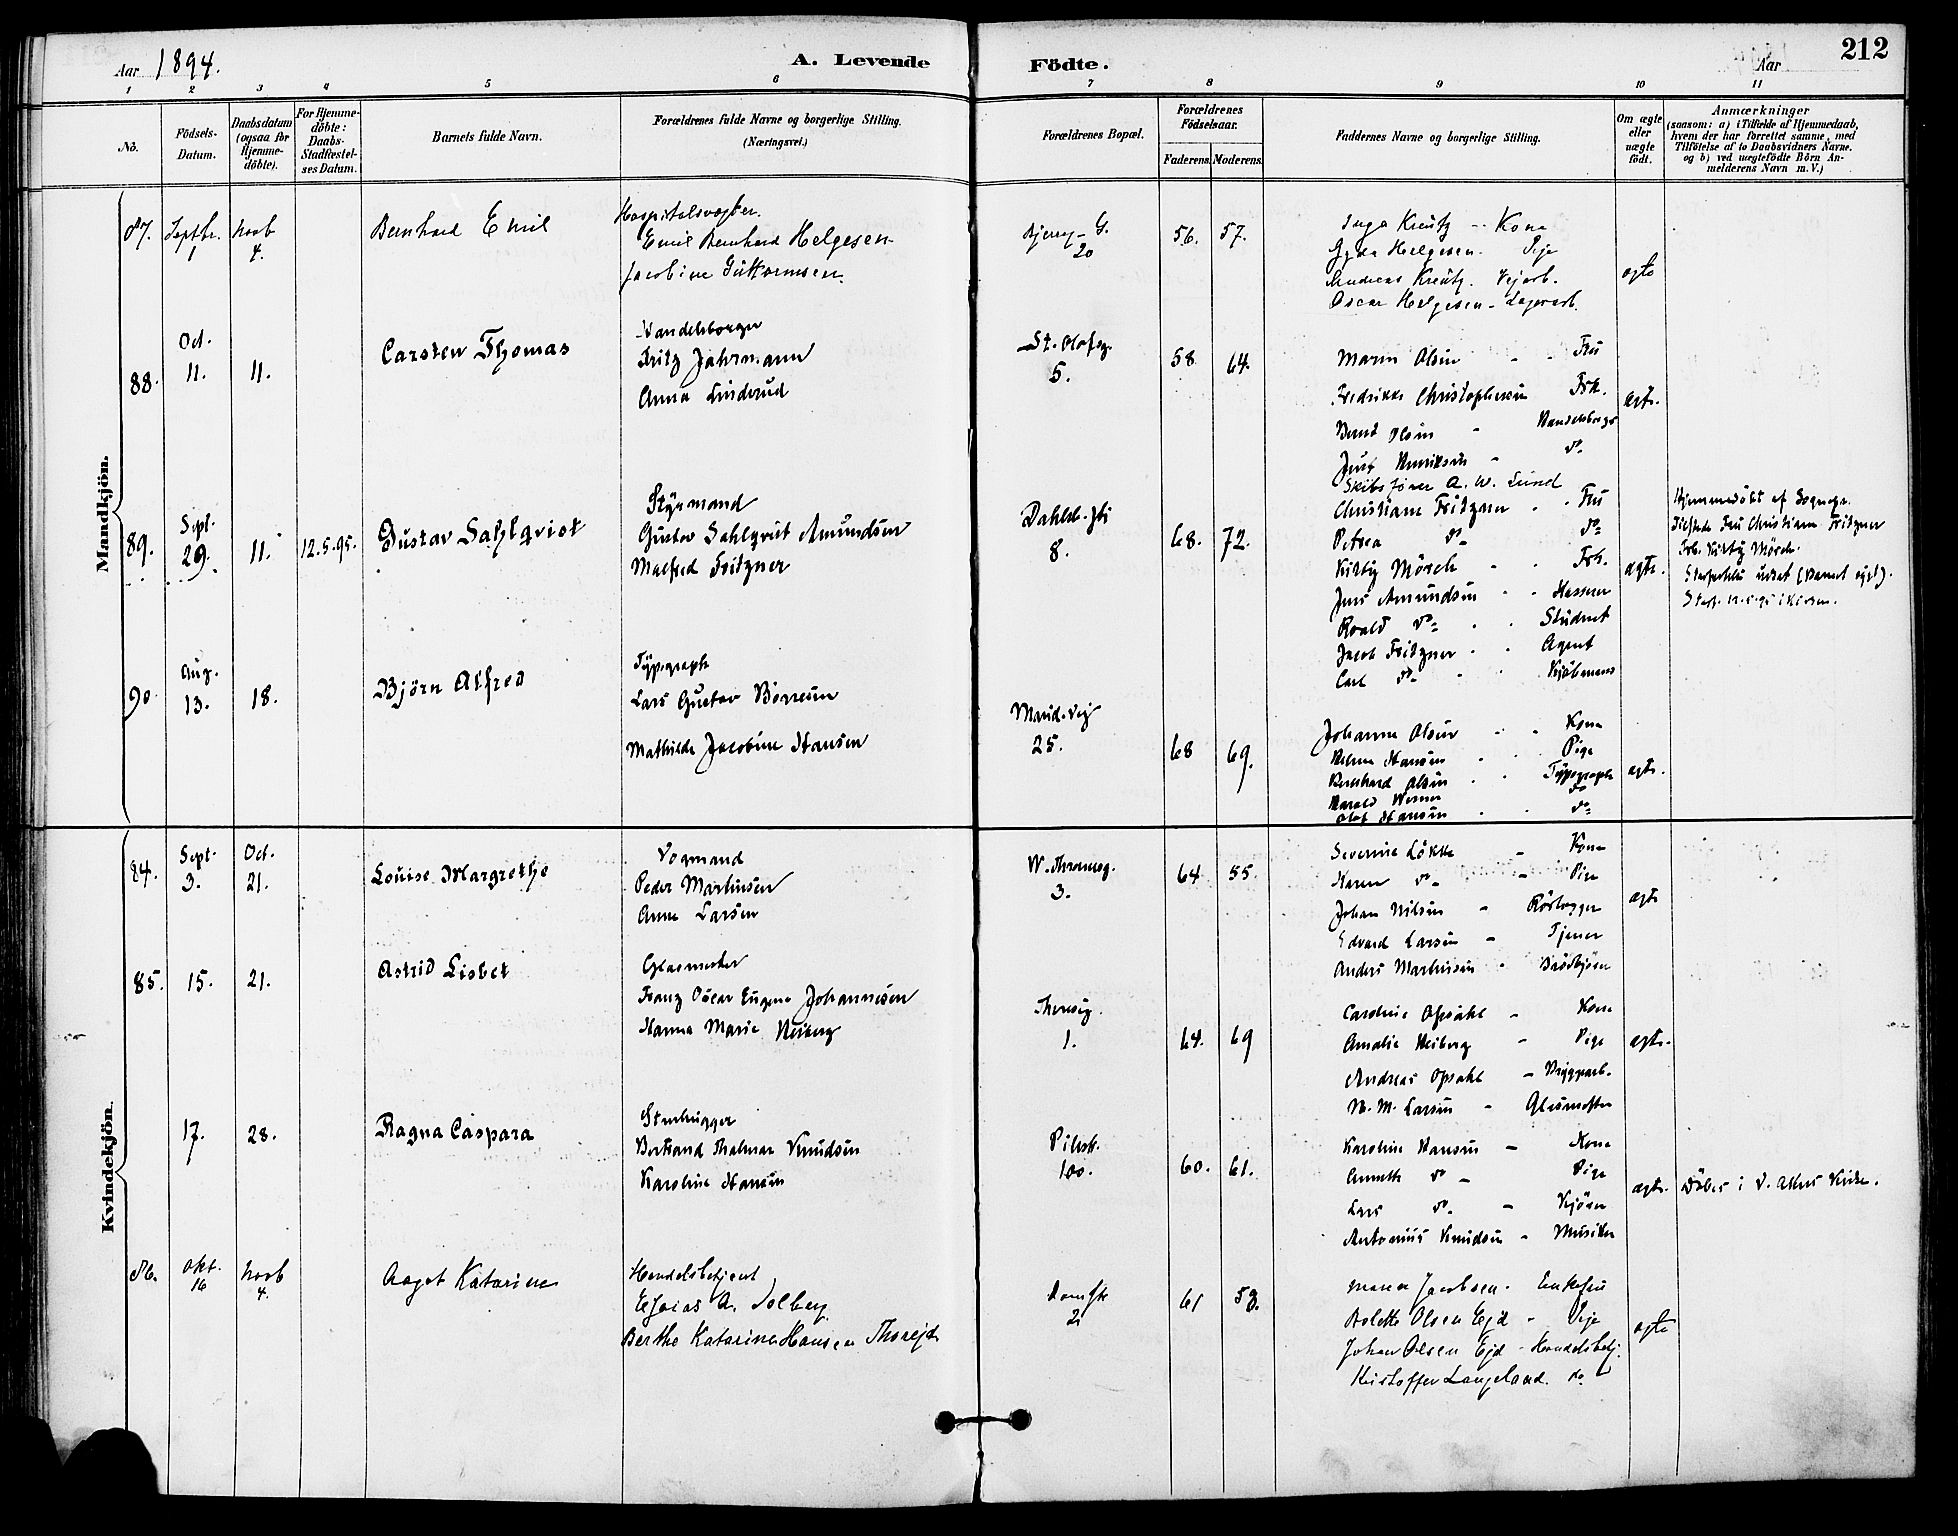 Aar 1894.
A. Levende
Födte.
Aar
212
1 2 3 4 5 6 7 8 9 10 11
No.
Födsels-Datum.
Daabsdatum (ogsaa for Hjemme-döbte).
For Hjemme-döbte: Daabs-Stadfæstel-ses Datum.
Barnets fulde Navn.
Forældrenes fulde Navne og borgerlige Stilling. (Næringsvei.)
Forældrenes Bopæl.
Forældrenes Födselsaar.
Faderens. Moderens.
Faddernes Navne og borgerlige Stilling.
Om ægte eller uægte født.
Anmærkninger
(saasom: a) i Tilfælde af Hjemmedaab,
hvem der har forrettet samme, med
Tilföielse af to Daabsvidners Navne.
og b) ved uægtefödte Börn An-
melderens Navn m. V.)
Mandkjön.
87. Septbr. 1 Novb 4. Bernhard Emil
Hospitalsvogter.
Emil Bernhard Helgesen
Jacobine Guttormsen
20
56. 57.
Inga Kreutz - Kone
Gyda Helgesen. Pige
Andreas Kreutz.
Oscar Helgesen - Lagerarb.
ægte
88. Oct. 11. 11. Carsten Thomas
Handelsborger
Fritz Jahrmann
Anna Linderud
St. Olafsg.
5.
58 64.
Maren Olsen - - Fru
Fredrikke Christophersen Frk.
Bernt Olsen - Handelsborger
Just Henriksen - do.
ægte.
89. Sept. 29. 11. 12.5.95. Gustav Sahlqvist
Styrmand
Gustav Sahlqvist Amundsen
Malfred Fritzner
8.
68. 72.
Skibsfører A. W. Lund
Christiane Fritzner - Fru
Petrea do do
Kitty Mörch - - Frk.
Jens Amundsen - -
Roald do - - Student
Jacob Fritzner - - Agent
Carl do - -
ægte.
Hjemmedöbt af Sognepr.
Tilstede Fru Christiane Fritzner
Frk. Kitty Mörch.
90. Aug. 13. 18. Björn Alfred
Typograph
Lars Gustav Börresen
Mathilde Jacobine Hansen
Marid.vej
25.
68 69.
Johanne Olsen - - Kone
Helma Hansen - - Pige
Bernhard Olsen - - Typograph
Harald Werner do
Olaf Hansen - - do
ægte.
Kvindekjön.
84. Sept. 3. Oct. 21. Louise Margrethe
Vognmand
Peder Martinsen
Anne Larsen
3.
64 55.
Severine Lökke - Kone
Karen do - Pige
Johan Nilsen - Rörlægger
Edvard Larsen - Tjener
Anders Martinsen -
ægte
85. 15. 21. Astrid Lisbet
Glasmester
Franz Oscar Eugene Johannesen
Hanna Marie Heiberg
1.
64. 69
Caroline Opsahl - Kone
Amalie Heiberg - Pige
Andreas Opsahl - Bryggearb.
N. M. Larsen - Glasmester
ægte.
17. 28. Ragna Caspara
Stenhugger
Bertrand Halmar Knudsen
Karoline Hansen
Pilest.
100.
60. 61.
Karoline Hansen - Kone
Annette do - Pige
Lars do - Kjörer
Antonius Knudsen - Musiker
ægte.
Döbt i V. Akers Kirke.
86. Okt. 16 Novb 4. Aagot Katarine
Handelsbetjent
Esaias A. Solberg
Berthe Katarine Hansen Thoreid
2
61 58.
Maren Jacobsen. Enkefru
Bolette Olsen Ejd - Pige
Johan Olsen Ejd - Handelsbetj.
Kristoffer Langeland. do
ægte